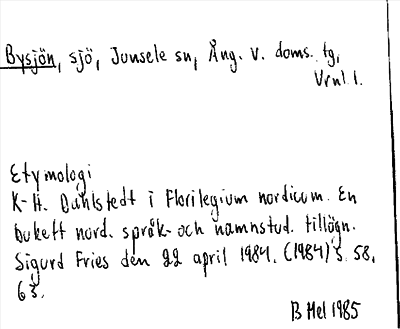 Bysjön, sjö, Junsele sn, Ång. v. doms. tg,
Vrnl. 1.
Etymologi
K-H. Dahlstedt i Florilegium nordicum. En
bukett nord. språk- och namnstud. tillägn.
Sigurd Fries den 22 april 1984. (1984) s. 58,
63.
B Mel 1985